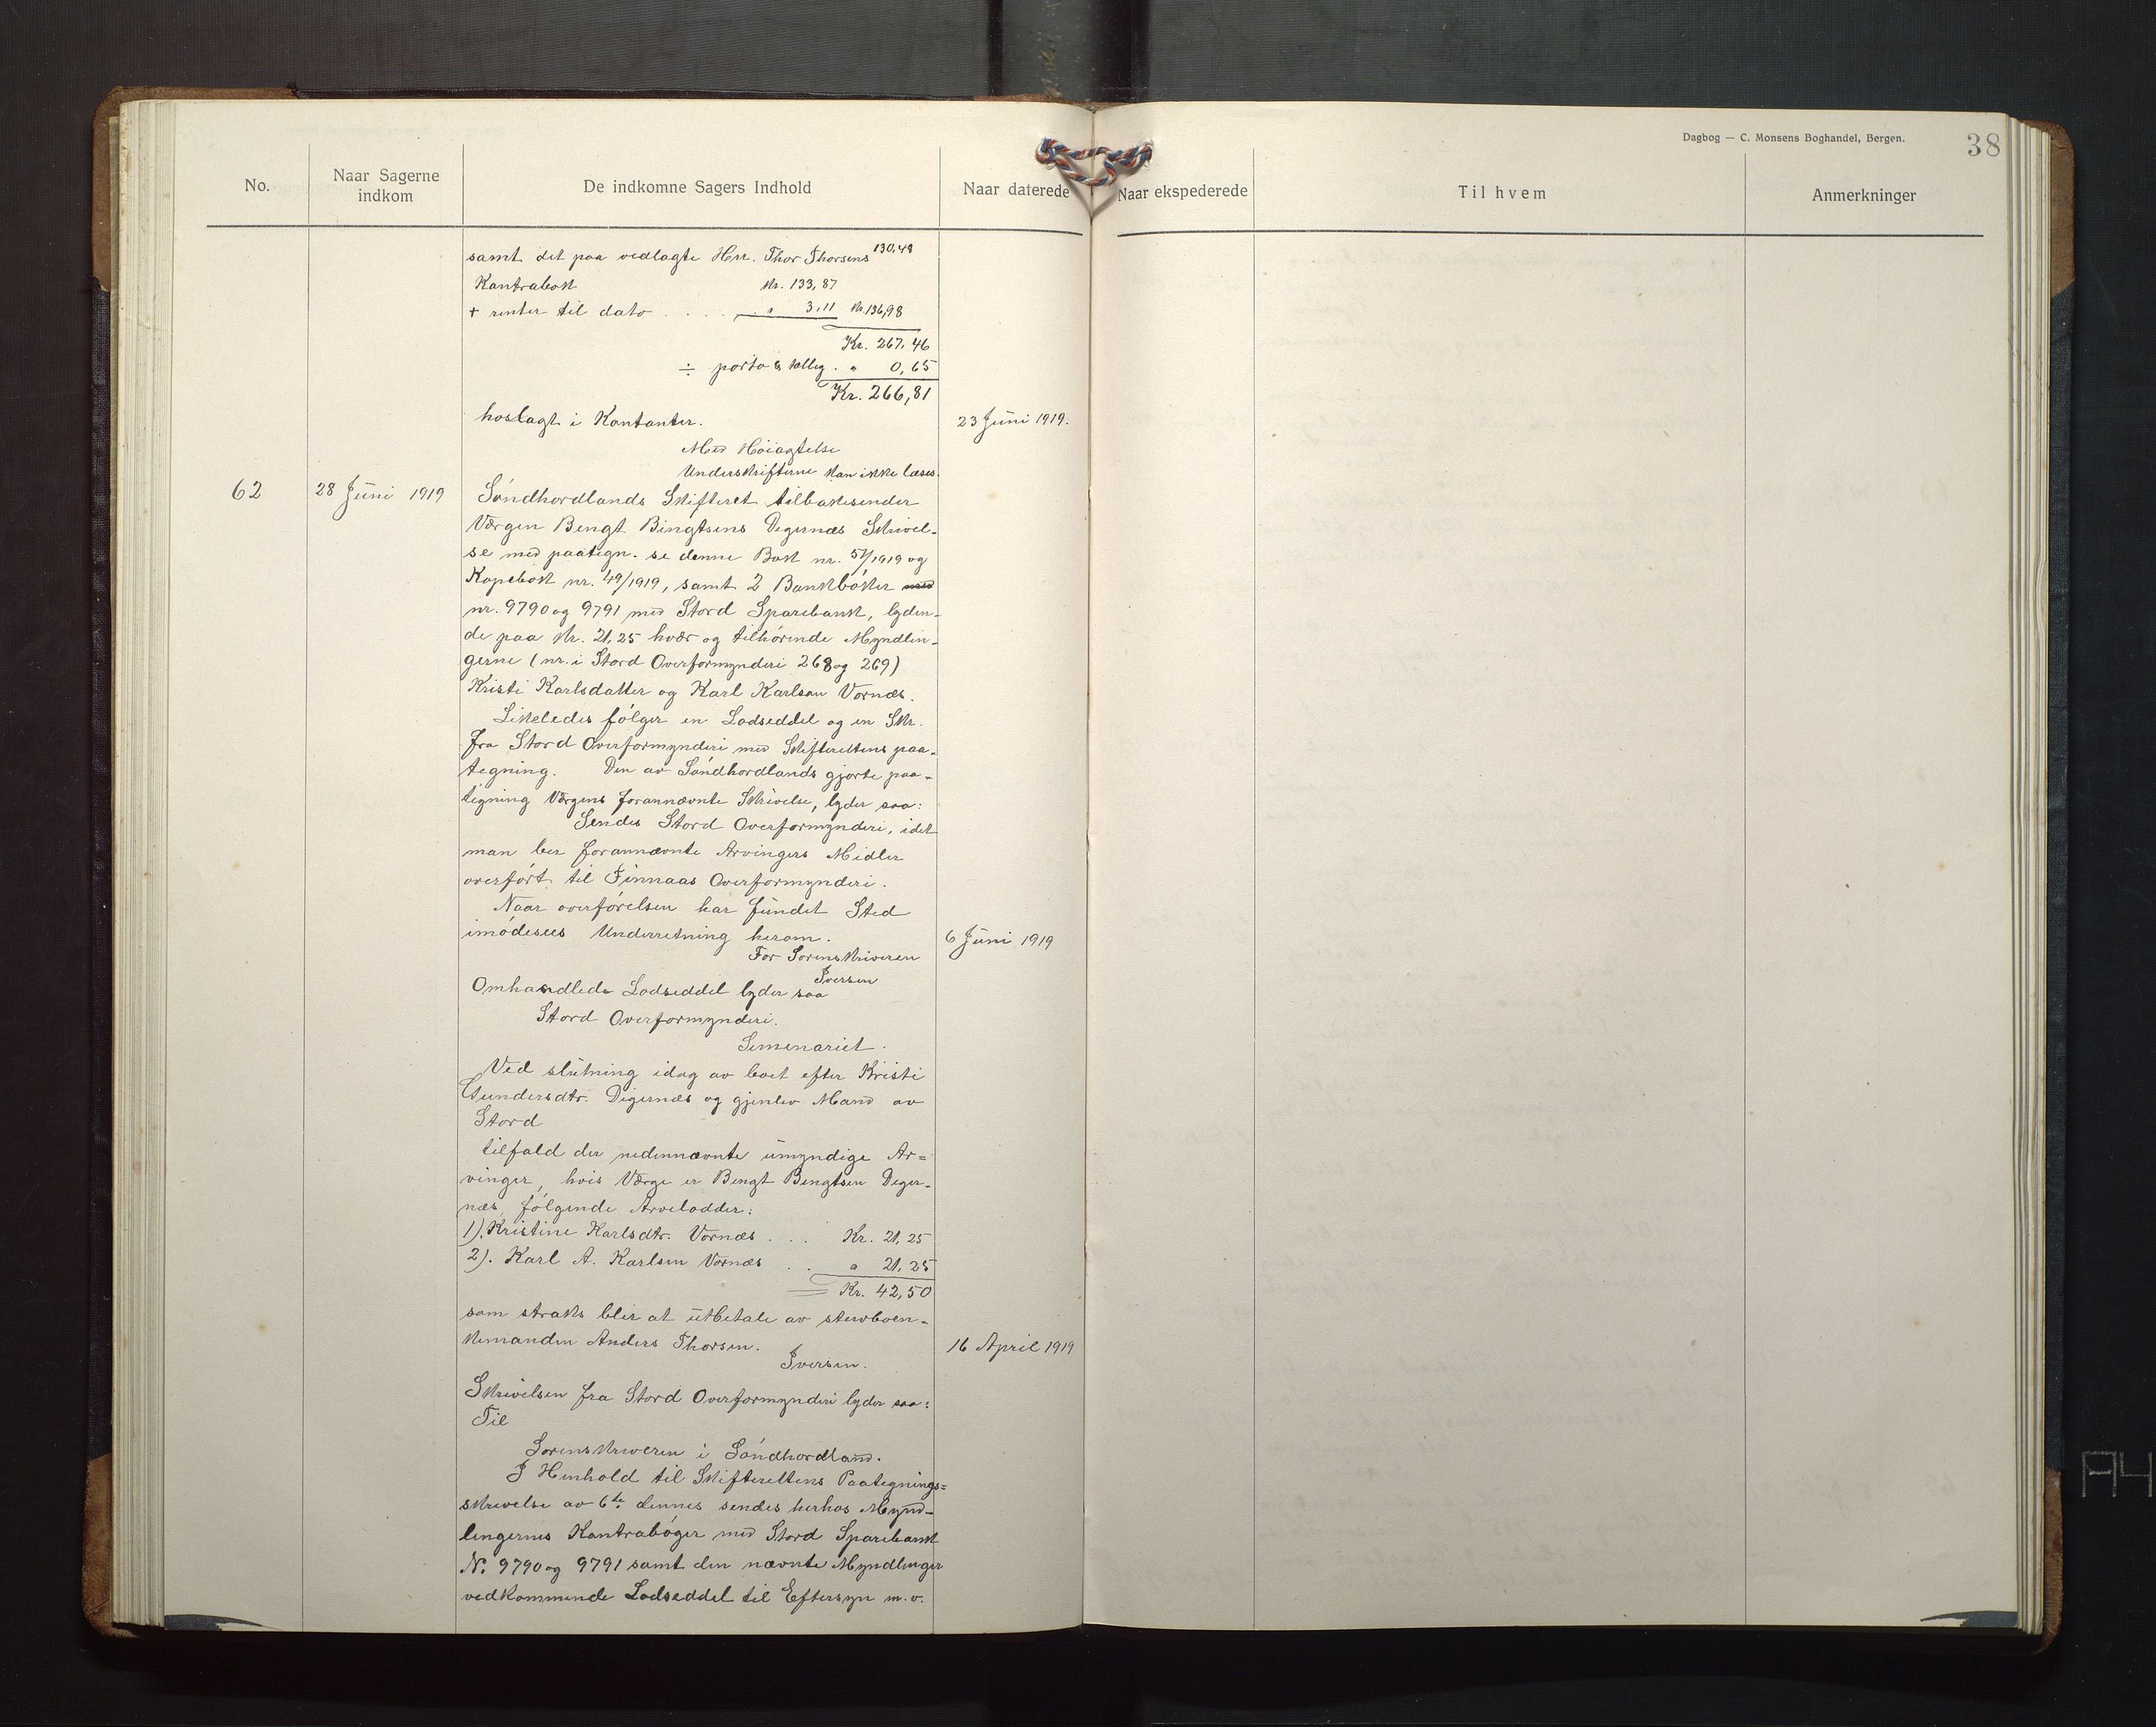 Dagbog — C. Monsens Boghandel, Bergen.
38
No.
Naar Sagerne indkom
De indkomne Sagers Indhold
Naar daterede
Naar ekspederede
Til hvem
Anmerkninger
samt det paa vedlagte Hrr. Thor Thorsens 130,48
Kontrabok Kr. 133,87
+ renter til dato . . . . „ 3,11 Kr. 136,98
Kr. 267,46
÷ porto & telleg. „ 0,65
Kr. 266,81
hoslagt i Kontanter. 23 Juni 1919.
Med Høiagtelse
Underskrifterne kan ikke læses.
62 28 Juni 1919 Søndhordlands Skifteret tilbakesender
Værgen Bengt Bingtsens Degernæs Skrivel-
se med paategn. se denne Bok nr. 57/1919 og
Kopebok nr. 49/1919, samt 2 Bankbøker med
nr. 9790 og 9791 med Stord Sparebank, lyden-
de paa Kr. 21,25 hvær og tilhørende Myndlin-
gerne (nr. i Stord Overformynderi 268 og 269)
Kristi Karlsdatter og Karl Karlson Vornæs.
Likeledes følger en Lodseddel og en Skr.
fra Stord Overformynderi med Skifterettens paa-
tegning. Den av Søndhordlands gjorte paa-
tegning Værgens forannævnte Skrivelse, lyder saa:
Sendes Stord Overformynderi, idet
man ber forannævnte Arvingers Midler
overført til Finnaas Overformynderi.
Naar overførelsen har fundet Sted
imødesees Underretning herom. 6 Juni 1919
For Sorenskriveren
Iversen
Omhandlede Lodseddel lyder saa
Stord Overformynderi.
Semenariet.
Ved slutning idag av boet efter Kristi
Gundersdtr. Digernæs og gjenlev Mand av
Stord
tilfald der nedennævnte umyndige Ar=
vinger, hvis Værge er Bengt Bengtsen Deger-
næs, følgende Arvelodder:
1). Kristine Karlsdtr. Vornæs . . . Kr. 21,25
2). Karl A. Karlsen Vornæs . . „ 21,25
Kr. 42,50
som straks blir at utbetale av stervboen-
kemanden Anders Thorsen. 16 April 1919
Iversen.
Skrivelsen fra Stord Overformynderi lyder saa:
Til
Sorenskriveren i Søndhordland.
I Henhold til Skifterettens Paategnings=
skrivelse av 6te dennes sendes herhos Mynd-
lingernes Kontrabøger med Stord Sparebank
N. 9790 og 9791 samt den nævnte Myndlinger
vedkommende Lodseddel til Eftersyn m. v.